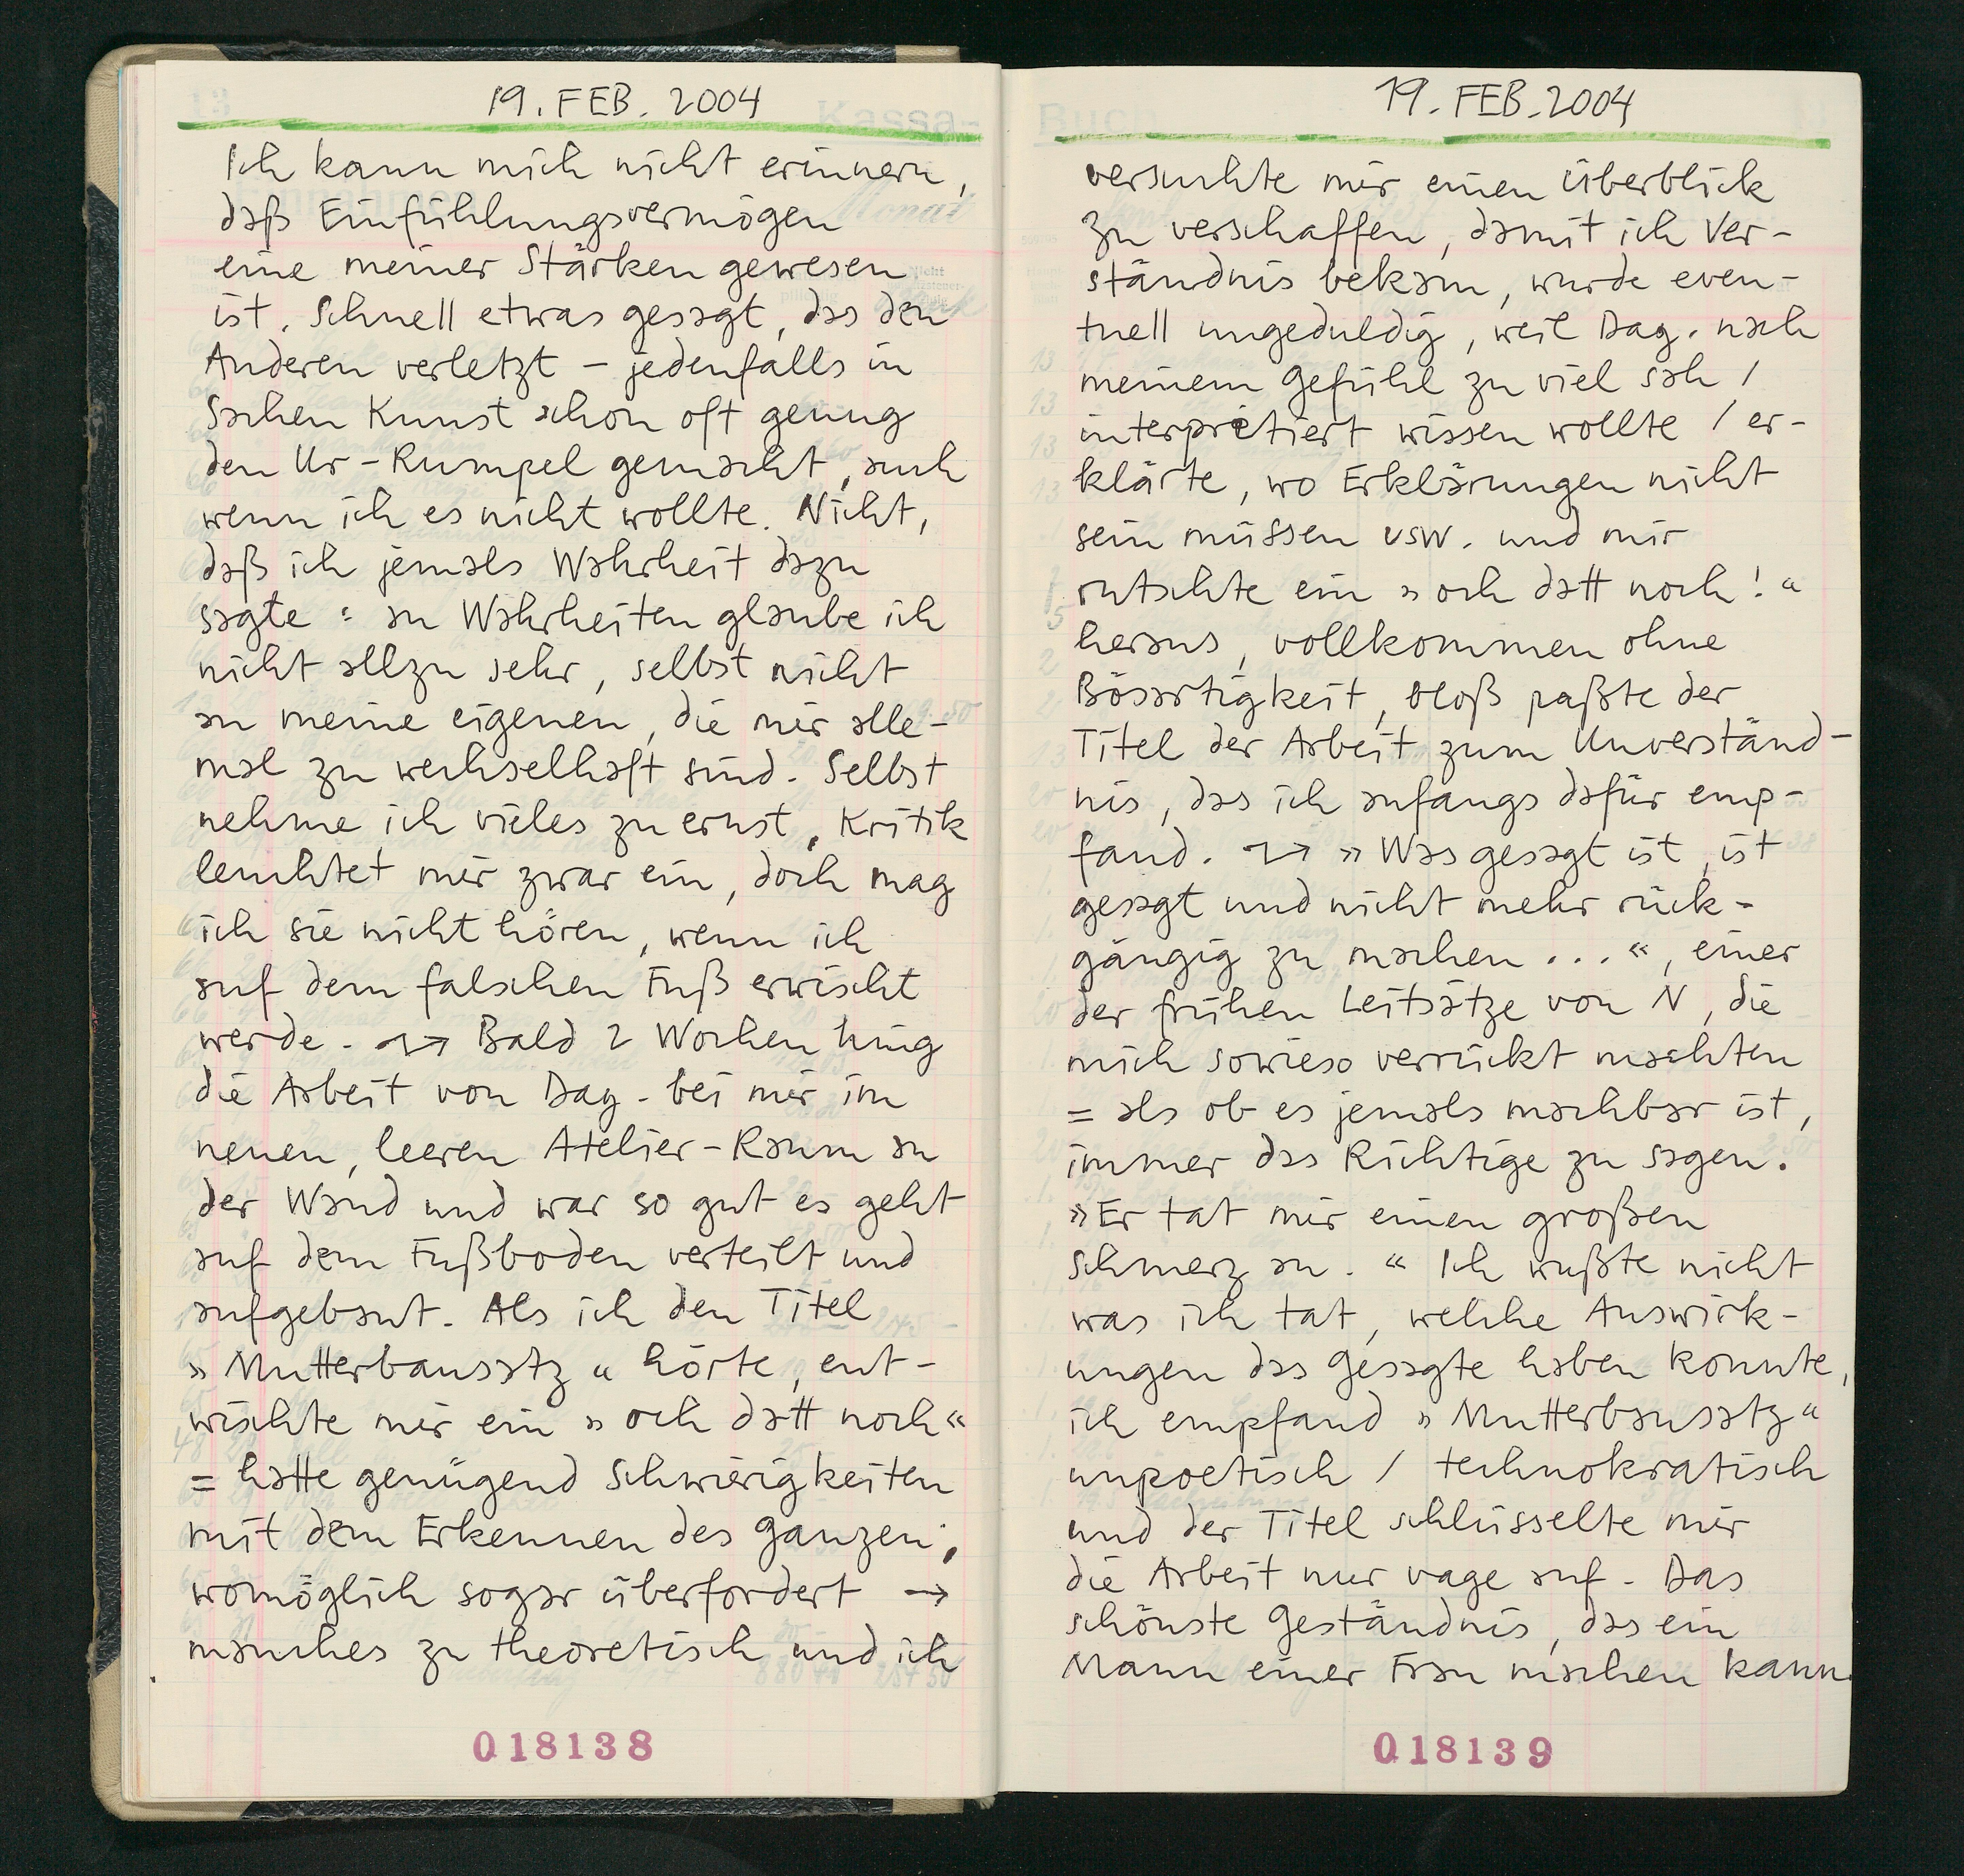 19. FEB. 2004
Ich kann mich nicht erinnern,
daß Einfühlungsvermögen
eine meiner Stärken gewesen
ist. Schnell etwas gesagt, das den
Anderen verletzt – jedenfalls in
Sachen Kunst schon oft genug
den Ur-Rumpel gemacht, auch
wenn ich es nicht wollte. Nicht,
daß ich jemals Wahrheit dazu
sagte : an Wahrheiten glaube ich
nicht allzu sehr, selbst nicht
an meine eigenen, die mir alle-
mal zu wechselhaft sind. Selbst
nehme ich vieles zu ernst, Kritik
leuchtet mir zwar ein, doch mag
ich sie nicht hören, wenn ich
auf dem falschen Fuß erwischt
werde. → Bald 2 Wochen hing
die Arbeit von Dag. bei mir im
neuen, leeren Atelier-Raum an
der Wand und war so gut es geht
auf dem Fußboden verteilt und
aufgebaut. Als ich den Titel
»Mutterbausatz« hörte, ent-
wischte mir ein »och datt noch«
= hatte genügend Schwierigkeiten
mit dem Erkennen des Ganzen;
womöglich sogar überfordert →
manches zu theoretisch und ich
018138
19. FEB. 2004
versuchte mir einen Überblick
zu verschaffen, damit ich Ver-
ständnis bekam, wurde even-
tuell ungeduldig, weil Dag. nach
meinem Gefühl zu viel sah /
interpretiert wissen wollte / er-
klärte, wo Erklärungen nicht
sein müssen usw. und mir
rutschte ein »och datt noch!«
heraus, vollkommen ohne
Bösartigkeit, bloß paßte der
Titel der Arbeit zum Unverständ-
nis, das ich anfangs dafür emp-
fand. → »Was gesagt ist, ist
gesagt und nicht mehr rück-
gängig zu machen...«, einer
der frühen Leitsätze von N, die
mich sowieso verrückt machten
= als ob es jemals machbar ist,
immer das Richtige zu sagen.
»Er tat mir einen großen
Schmerz an.« Ich wußte nicht
was ich tat, welche Auswirk-
ungen das Gesagte haben konnte,
ich empfand »Mutterbausatz«
unpoetisch / technokratisch
und der Titel schlüsselte mir
die Arbeit nur vage auf. Das
schönste Geständnis, das ein
Mann einer Frau machen kann
018139